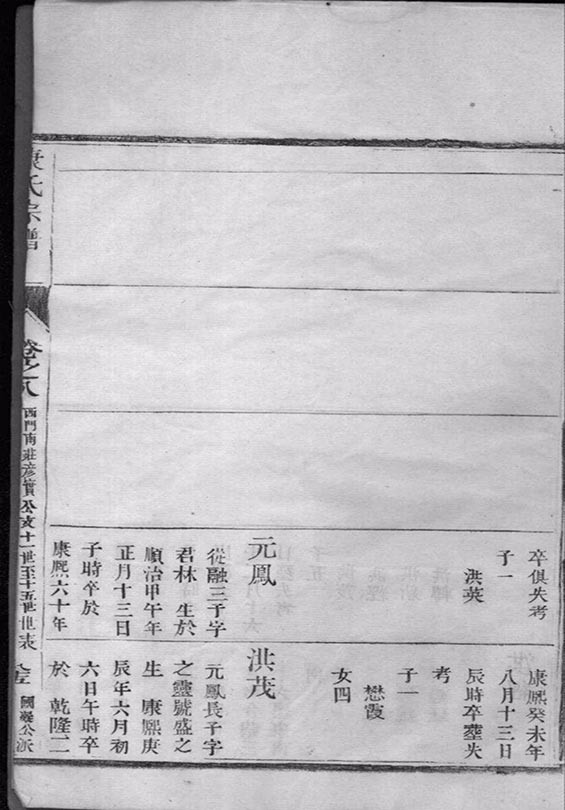 康氏宗譜
卷之八
西門南莊彦實公支十一世至十五世世表
國襄公派
卒俱失考
子一
洪英
元鳳
從融三子字
君林 生於
順治甲午年
正月十三日
子時卒於
康熙六十年
康熙癸未年
八月十三日
辰時卒塟失
考
子一
懋霞
女四
洪茂
元鳳長子字
之靈號盛之
生 康熙庚
辰年六月初
六日午時卒
於 乾隆二